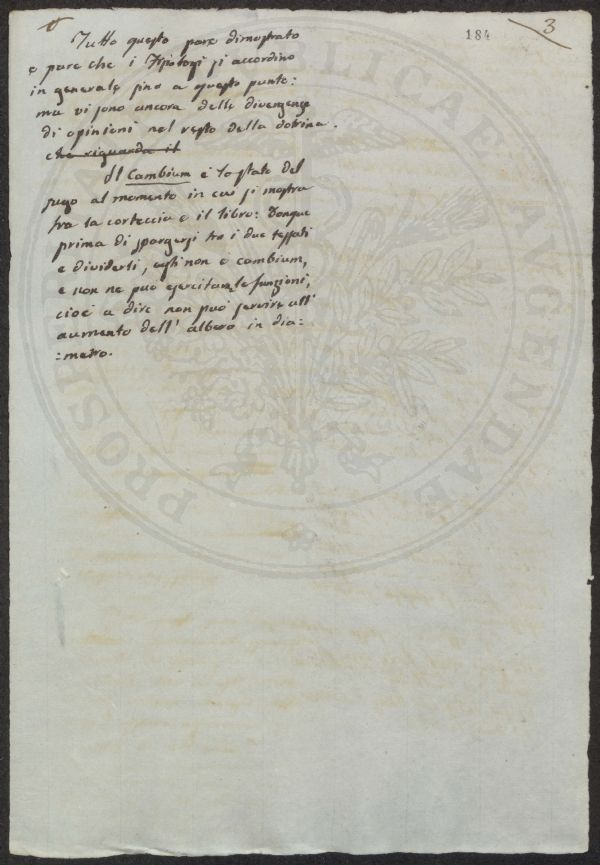 184
3
Tutto questo pare dimostrato
e pare che i Fisiologi si accordino
in generale sino a questo punto:
ma vi sono ancora delle divergenze
di opinioni nel resto della dotrina.
che riguarda il
Il Cambium è lo stato del
sugo al momento in cui si mostra
fra la corteccia e il libro: Donque
prima di spargersi tra i due tessuti
e dividerli, egli non è cambium,
e non ne può esercitare le funzioni,
cioè a dire non può servire all'
aumento dell' albero in dia=
=metro.
PUBLICAE AUGENDAE
PROSPERITATI